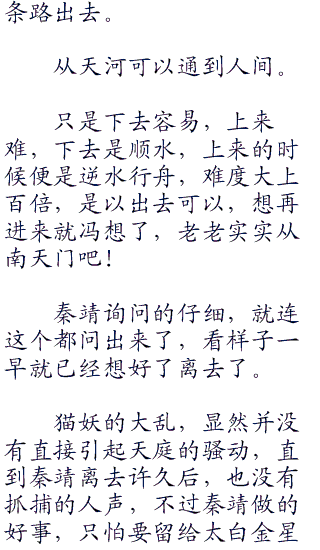 条路出去。
从天河可以通到人间。
只是下去容易，上来
难，下去是顺水，上来的时
候便是逆水行舟，难度大上
百倍，是以出去可以，想再
进来就冯想了，老老实实从
南天门吧！
秦靖询问的仔细，就连
这个都问出来了，看样子一
早就已经想好了离去了。
猫妖的大乱，显然并没
有直接引起天庭的骚动，直
到秦靖离去许久后，也没有
抓捕的人声，不过秦靖做的
好事，只怕要留给太白金星